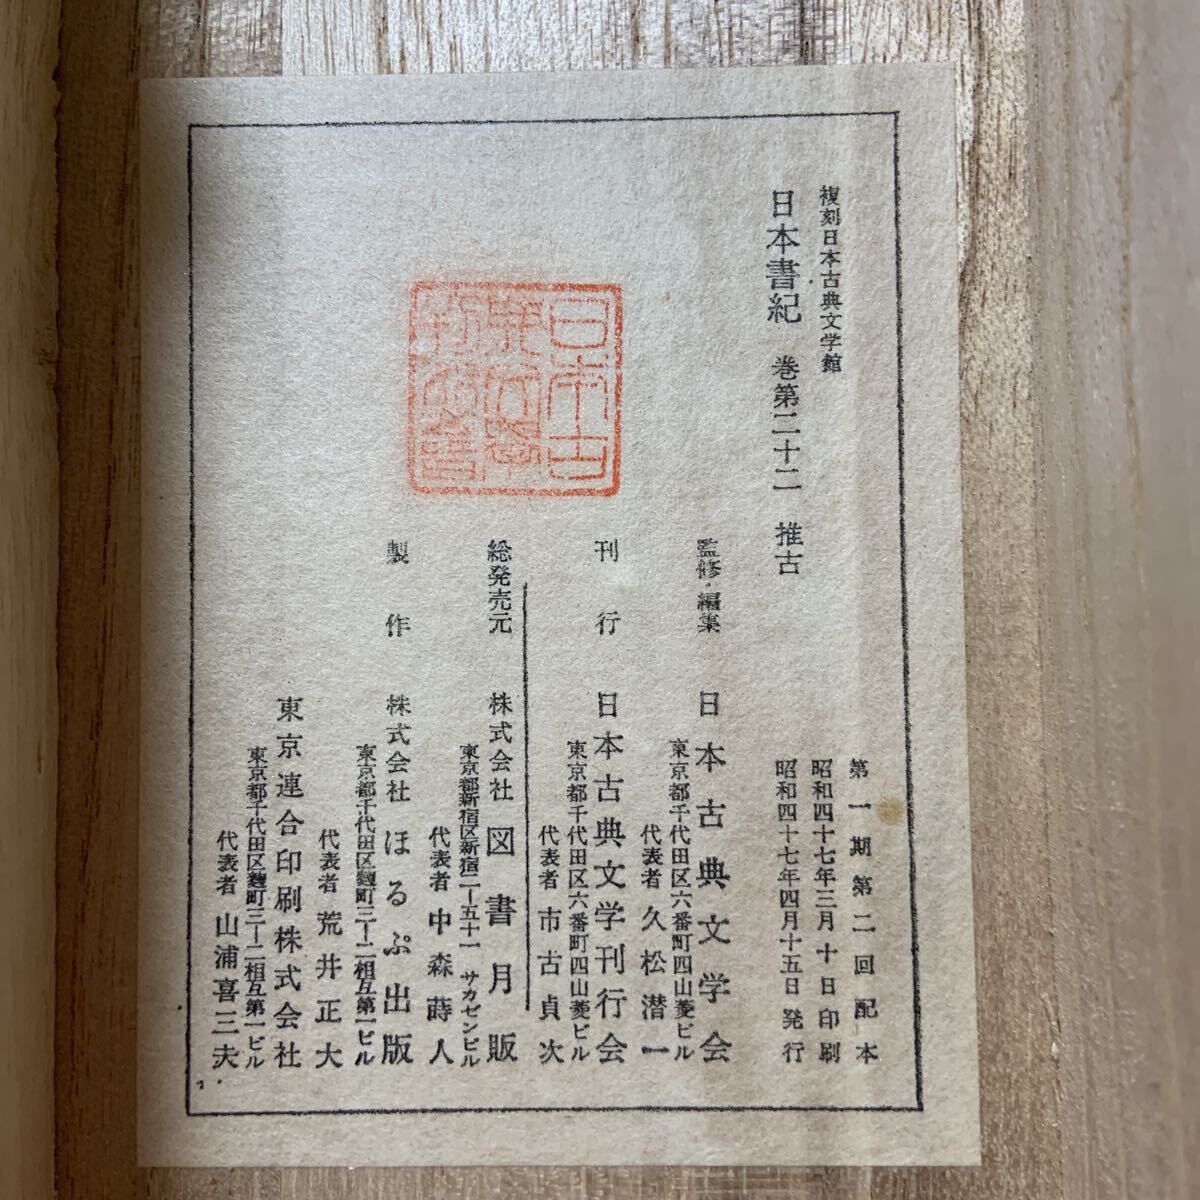 複刻日本古典文学館
日本書紀 巻第二十二 推古
第一期第二回配本
昭和四十七年三月十日印刷
昭和四十七年四月十五日発行
監修・編集 日本古典文学会
東京都千代田区六番町四山菱ビル
代表者 久松潜一
刊行 日本古典文学刊行会
東京都千代田区六番町四山菱ビル
代表者 市古貞次
総発売元 株式会社 図書月販
東京都新宿区新宿二ー五十一 サカゼンビル
代表者 中森蒔人
製作 株式会社 ほるぷ出版
東京都千代田区麹町三ー二相互第一ビル
代表者 荒井正大
東京連合印刷株式会社
東京都千代田区麹町三ー二相互第一ビル
代表者 山浦喜三夫
日本古